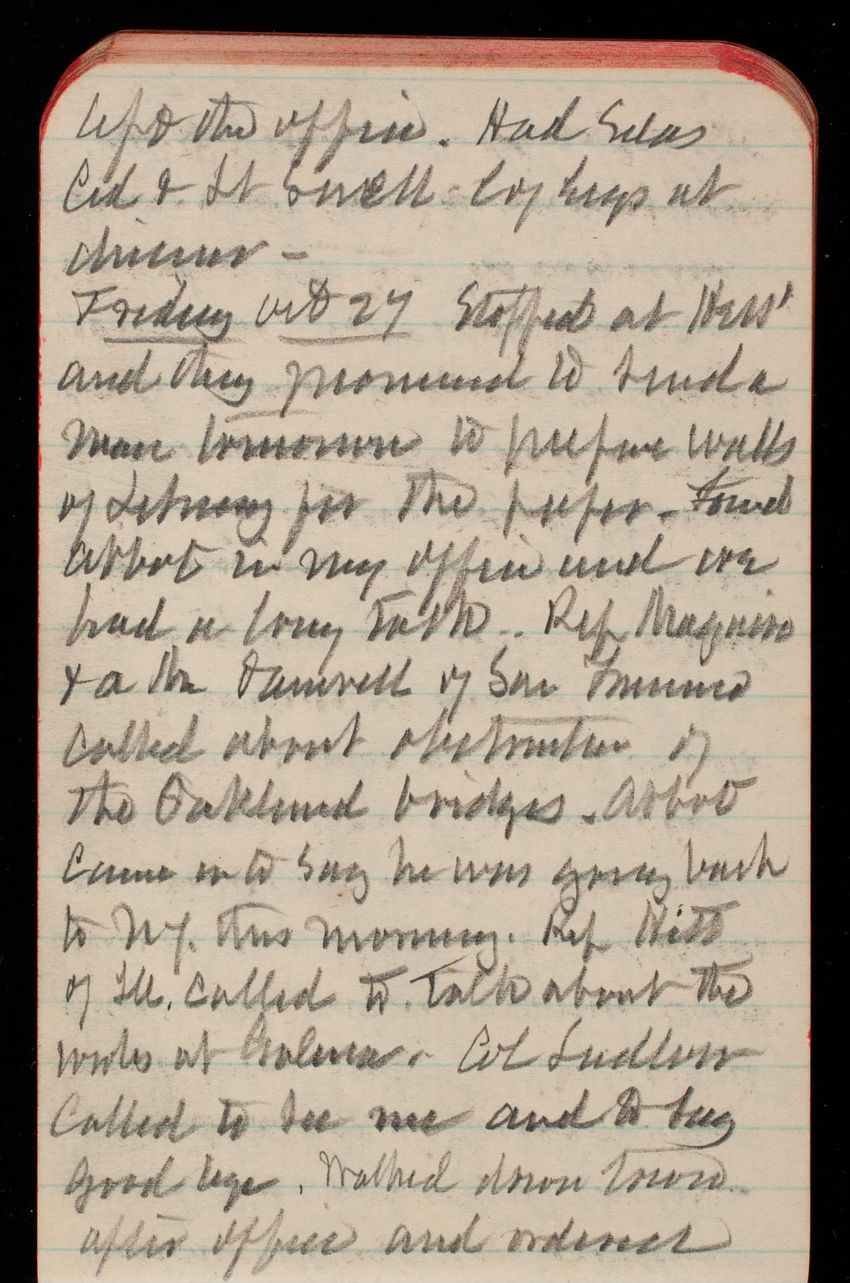 left the office. Had Silas
Col & Lt
dinner –
Friday Oct 27 Stopped at Hess'
and they promised to send a
man tomorrow to prepare walls
of Library for the paper. Found
Abbot in my office and we
had a long talk. Rep Maguire
& a Mr of San Francisco
called about obstruction of
the Oakland bridges. Abbot
came in to say he was going back
to N.Y. this morning. Rep Hitt
of Ill. called to talk about the
works at Galena. Col Ludlow
called to see me and to say
good bye. Walked down town
after office and ordered